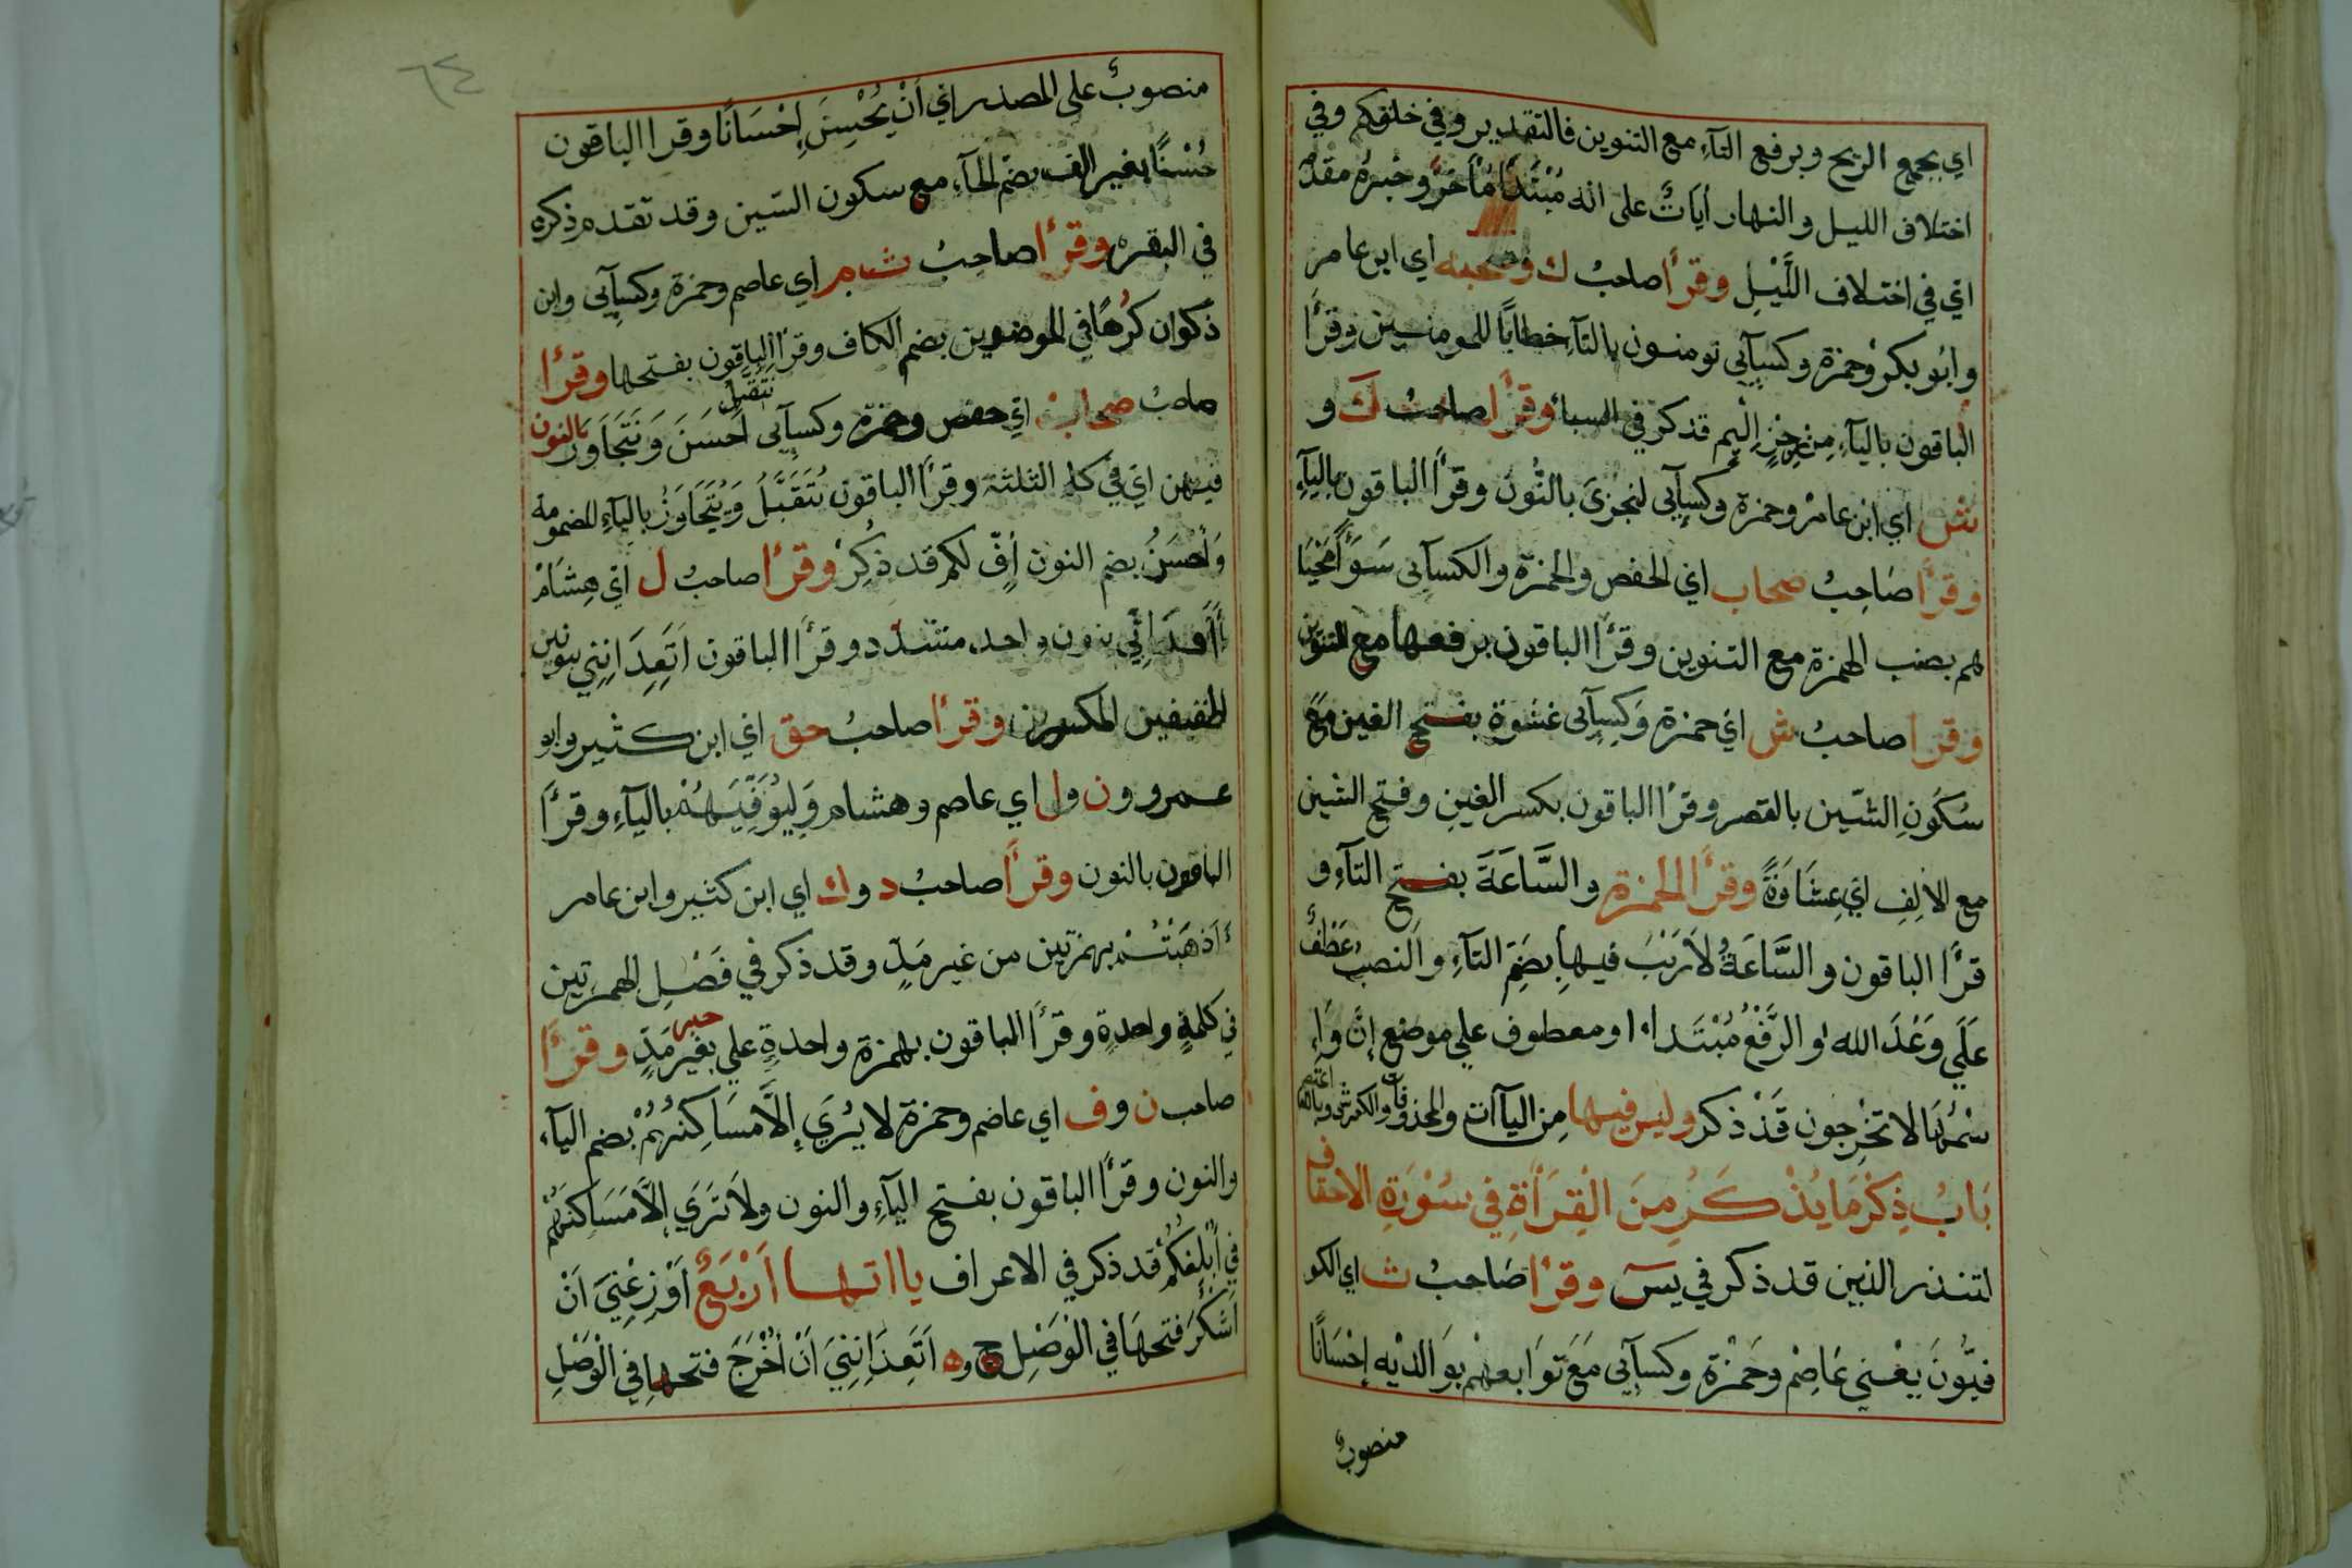 اي بجمع الريح وبرفع التآء مع التنوين فالتقدير وفي خلقكم وفي
اختلاف الليل والنهار اٰياتٌ على انه مُبْتَدَأ مُأخرٌ وخبره مقدم
اي في اختلاف اللَّيْلِ وقرأ صاحبُ ك وصحبه اي ابن عامر
وابُو بكر وحمزة وكسآيى تومنون بالتآء خطابًا للمومنين وقرأ
الباقون باليآء مِن رِجْزٍ اليم قد ذكر في السبا وقرأ صاحبُ ك و
ش اي ابن عامر وحمزة وكسآيى لنجزىَ بالنُّون وقرأ الباقون باليآءِ
وقرأ صَاحِبُ صحاب اي الحفص والحمزة والكسآيى سَوَآءً مَحْيَا
هم بصنب الهمزة مع التنوين وقرأ الباقون برفعها مع التنوين
وقرأ صاحبُ ش اي حمزة وَكسآيى غشوة بفتح الغين مَعَ
سُكُونِ الشّين بالقصر وقرأ الباقون بكسر الغين وفتح الشين
مع الالِفِ اي غِشَاوَةً وقرأ الحمزة والسَّاعَةَ بفتح التآءِ و
قرأ الباقون والسَّاعَةُ لَا رَيْبَ فيها بِضَمِ التآءِ والنصبُ عَطْفٌ
عَلَي وَعْدَ الله والرَّفْعُ مُبْتَدَاء او معطوف علي موضع إنَّ وَا
سْمُهَا لا تخْرجون قَدْ ذكر وليس فيها مِن اليآآت والمحذوفات
بَابُ ذِكْرِ مَا يُذْكَرُ مِنَ الْقِرَأَةِ في سُوْرَةِ الاحقاف
لتنذر الذين قد ذكر في يسٓ وقرأ صَاحبُ ث اي الكو
فيُّونَ يَعْني عَاصِمْ وحَمْزة وكسآيى مَعَ تَوابعهْم بوَالديْه إحْسَانًا
منصوبٌ
٦٤
منصوبٌ على المصدر اي أنْ يُحْسِنَ إحْسَانًا وقرا الباقون
حُسْنًا بغير الف بضم الحآء مع سكون السّين وقد تقدم ذكره
في البقره وقرأ صاحبُ ث م اي عاصم وحمزة وكسآيى وابن
ذكوان كُرْهًا في الموضعين بضم الكاف وقرأ الباقون بفتحها وقرأ
صاحبُ صحاب اي حفص وحمزة وكسآيى نَتَقَبَّل اَحْسَنَ وَنَتَجَاوَزُ بالنون
فيهن اي في كل الثلثة وقرأ الباقون يُتَقَبَّلُ وَيُتَجَاوَزُ باليآءِ المضمومة
وَأحْسَنُ بضم النون اُفٍّ لكم قد ذُكِرْ وقرأ صاحبُ ل اي هِشَامْ
بنون واحد مشدّد وقرأ الباقون اَتَعِدَانِنِي بنونين
الخفيفين المكسورين وقرأ صاحبُ حق اي ابن كثير وابو
عمرو ون ول اي عاصم وهشام وَلِيُوَفِّيَهُمْ باليآءِ وقرأ
الباقون بالنون وقرأ صاحبُ د وك اي ابن كثير وابن عامر
أأذهَبْتُمْ بهمزتين من غير مَدٍّ وقد ذكر في فَصْلِ الهمزتين
في كلمةٍ واحدةٍ وقرأ الباقون بهمزة واحدةٍ علي خبر بغير مَدٍّ وقرأ
صاحب ن وف اي عاصم وحمزة لا يُرَي إلَّا مَسَاكِنُهُمْ بضم اليآء
والنون وقرأ الباقون بفتح اليآءِ والنون ولَا تَرَي إلَّا مَسَاكنَهُمْ
في أُبْلِغكُمْ قد ذكر في الاعراف يا اتها اَرْبَعٌ اَوْزِعْنِيَ اَنْ
اَشْكُرَ فتحهَا في الْوَصْلِ ج وه اَتَعِدَانِنِيَ اَنْ اُخْرَجَ فتحها في الْوَصْلِ